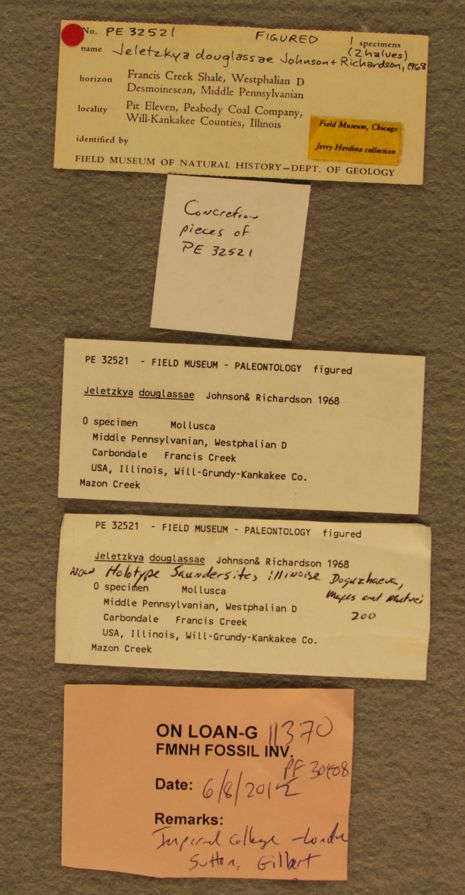 No. PE 32521 FIGURED 1 specimens
(2 halves)
name Jeletzkya douglassae Johnson + Richardson, 1968
horizon Francis Creek Shale, Westphalian D
Desmoinesean, Middle Pennsylvanian
locality Pit Eleven, Peabody Coal Company,
Will-Kankakee Counties, Illinois
Field Museum, Chicago
Jerry Herdina collection
identified by
FIELD MUSEUM OF NATURAL HISTORY—DEPT. OF GEOLOGY
Concretion
pieces of
PE 32521
PE 32521 - FIELD MUSEUM - PALEONTOLOGY figured
Jeletzkya douglassae Johnson& Richardson 1968
0 specimen Mollusca
Middle Pennsylvanian, Westphalian D
Carbondale Francis Creek
USA, Illinois, Will-Grundy-Kankakee Co.
Mazon Creek
PE 32521 - FIELD MUSEUM - PALEONTOLOGY figured
Jeletzkya douglassae Johnson& Richardson 1968
Now Holotype Saundersites illinoise Doguzhaeva,
Mapes and
0 specimen Mollusca
200
Middle Pennsylvanian, Westphalian D
Carbondale Francis Creek
USA, Illinois, Will-Grundy-Kankakee Co.
Mazon Creek
ON LOAN-G 11370
FMNH FOSSIL INV.
Date: 6/8/2012
Remarks:
Imperial College - London
Sutton, Gilbert